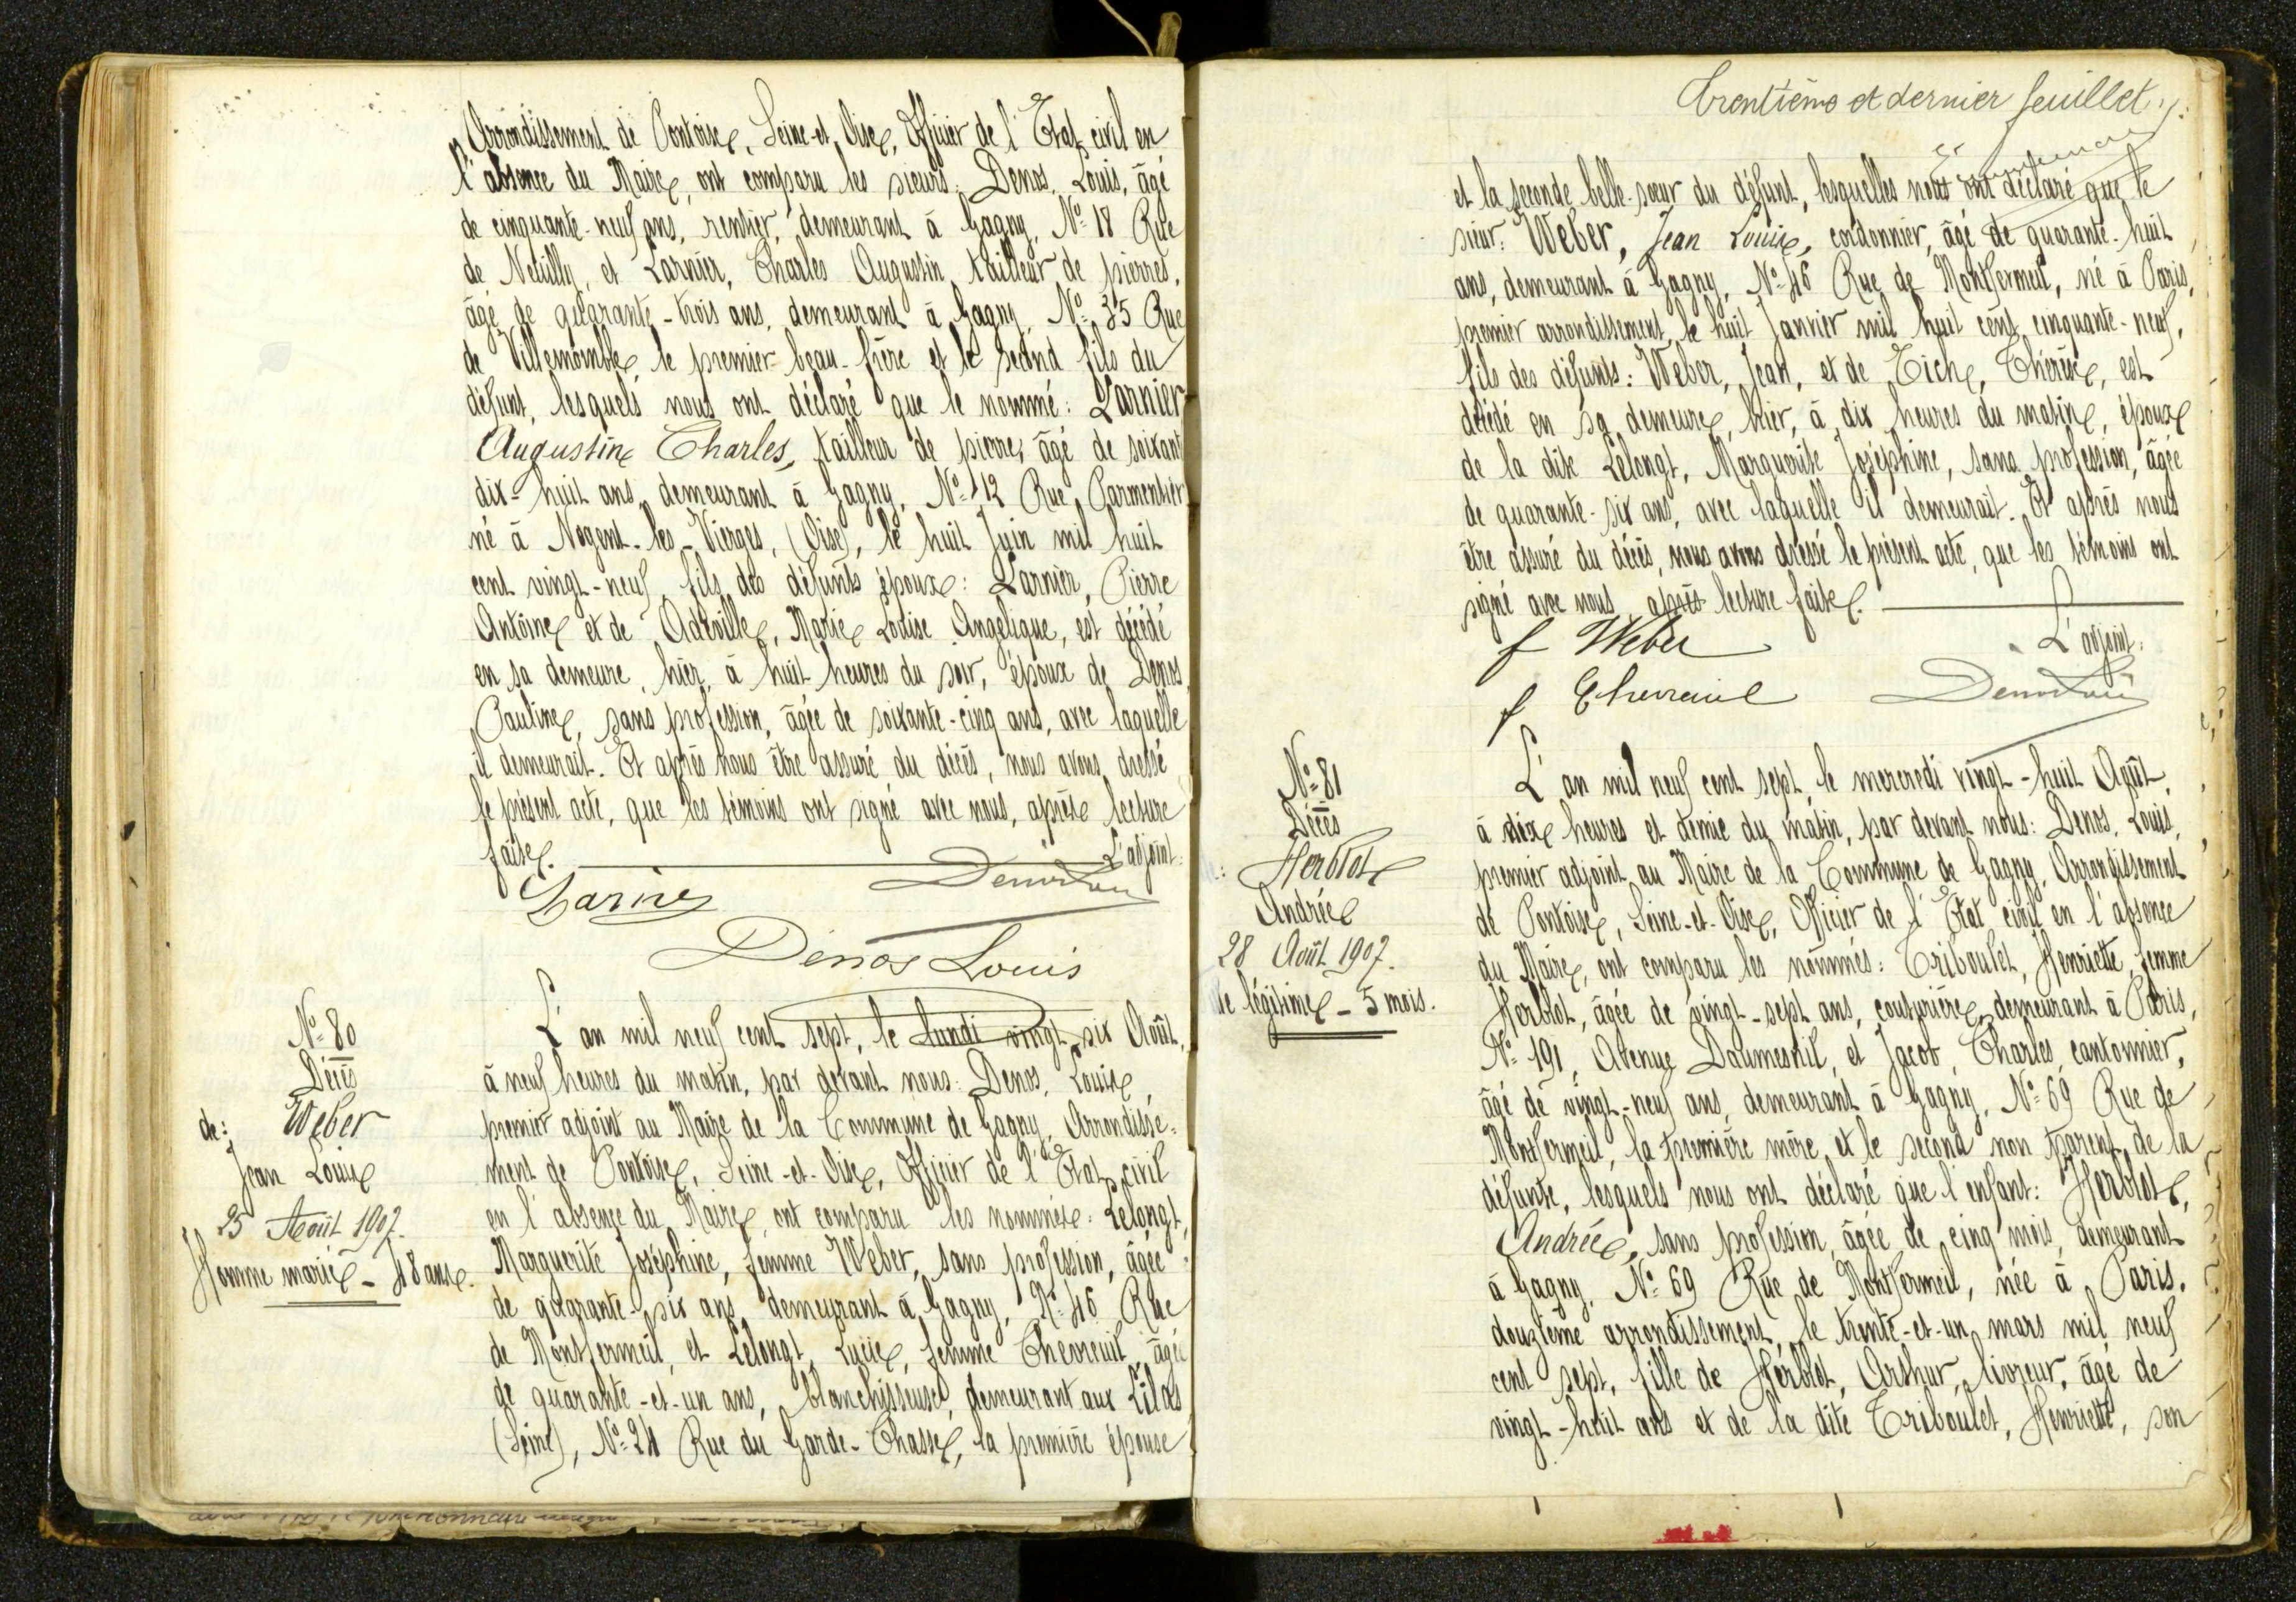 Arrondissement de Pontoise, Seine-et-Oise, Officier de l'Etat civil en
l'absence du Maire, ont comparu les sieurs: Denos, Louis, âgé
de cinquante-neuf ans, rentier, demeurant à Gagny, N° 18 Rue
de Neuilly, et Larnier, Charles Augustin, tailleur de pierres,
âgé de quarante-trois ans, demeurant à Gagny, N° 35 Rue
de Villemomble, le premier beau-frère et le second fils du
défunt, lesquels nous ont déclaré que le nommé: Larnier
Augustin Charles, tailleur de pierre, âgé de soixant
dix-huit ans, demeurant à Gagny, N° 12 Rue Parmentier
né à Nogent-les-Vierges, (Oise), le huit Juin mil huit
cent vingt-neuf, fils des défunts époux: Larnier, Pierre
Antoine et de Marie Louise Angélique, est décédé
en sa demeure, hier, à huit heures du soir, époux de Denos
Pauline, sans profession, âgée de soixante-cinq ans, avec laquelle
il demeurait. Et après nous être assuré du décès, nous avons dressé
le présent acte, que les témoins ont signé avec nous, après lecture
faite. L'adjoint:
Larnier
Denos Louis
N° 80
Décès
de: Weber
Jean Louis
25 Août 1907.
Homme marié - 48 ans.
L'an mil neuf cent sept, le lundi vingt-six Août,
à neuf heures du matin, par devant nous: Denos, Louis,
premier adjoint au Maire de la Commune de Gagny, Arrondisse-
ment de Pontoise, Seine-et-Oise, Officier de l'Etat civil
en l'absence du Maire, ont comparu les nommées: Lelongt,
Marguerite Joséphine, femme Weber, sans profession, âgée
de quarante-six ans, demeurant à Gagny, N° 46 Rue
de Montfermeil, et Lelongt, Lucie, femme Chevreuil, âgée
de quarante-et-un ans, blanchisseuse, demeurant aux Lilas
(Seine), N° 24 Rue du Garde-Chasse, la première épouse
trentième et dernier feuillet
et la seconde belle-sœur du défunt, lesquelles nous ont déclaré que le
sieur: Weber, Jean Louis, cordonnier, âgé de quarante-huit
ans, demeurant à Gagny, N° 46 Rue de Montfermeil, né à Paris,
premier arrondissement, le huit Janvier mil huit cent cinquante-neuf,
fils des défunts: Weber, Jean, et de Eich, Thérèse, est
décédé en sa demeure, hier, à dix heures du matin, époux
de la dite Lelongt, Marguerite Joséphine, sans profession, âgée
de quarante-six ans, avec laquelle il demeurait. Et après nous
être assuré du décès, nous avons dressé le présent acte, que les témoins ont
signé avec nous après lecture faite.
f Weber L'adjoint:
f Chevreuil
N° 81
Décès
Herblot
Andrée
28 Août 1907.
légitime - 5 mois.
L'an mil neuf cent sept, le mercredi vingt-huit Août,
à dix heures et demie du matin, par devant nous: Denos, Louis,
premier adjoint au Maire de la Commune de Gagny, Arrondissement
de Pontoise, Seine-et-Oise, Officier de l'Etat civil en l'absence
du Maire, ont comparu les nommés: Triboulet, Henriette, femme
Herblot, âgée de vingt-sept ans, couturière, demeurant à Paris,
N° 191, Avenue Daumesnil, et Jacob, Charles, cantonnier,
âgé de vingt-neuf ans, demeurant à Gagny, N° 69 Rue de
Montfermeil, la première mère, et le second non parent de la
défunte, lesquels nous ont déclaré que l'enfant: Herblot,
Andrée, sans profession, âgée de cinq mois, demeurant
à Gagny, N° 69 Rue de Montfermeil, née à Paris,
douzième arrondissement, le trente-et-un mars mil neuf
cent sept, fille de Herblot, Arthur, livreur, âgé de
vingt-huit ans et de la dite Triboulet, Henriette, son